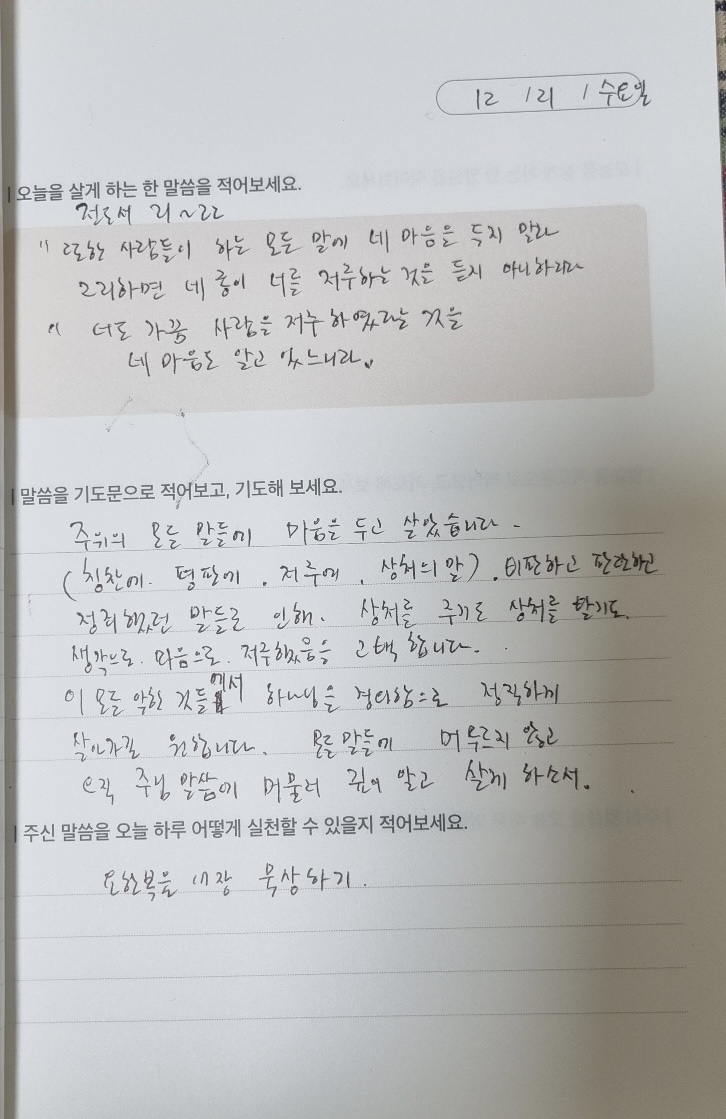 12 / 21 / 수요일
| 오늘을 살게 하는 한 말씀을 적어보세요.
전도서 21~22
" 또한 사람들이 하는 모든 말에 네 마음을 두지 말라
그리하면 네 종이 너를 저주하는 것을 듣지 아니하리라
" 너도 가끔 사람을 저주하였다는 것을
네 마음도 알고 있느니라.
| 말씀을 기도문으로 적어보고, 기도해 보세요.
주위의 모든 말들에 마음을 두고 살았습니다.
(칭찬에. 평판에. 저주에. 상처의 말). 비판하고 판단하고
정죄했던 말들로 인해. 상처를 주기도 상처를 받기도.
생각으로. 마음으로. 저주했음을 고백합니다.
이 모든 악한 것들에서 하나님을 경외함으로 정직하게
살아가길 원합니다. 모든 말들에 머무르지 않고
오직 주님 말씀에 머물러 깊이 알고 살게 하소서.
| 주신 말씀을 오늘 하루 어떻게 실천할 수 있을지 적어보세요.
요한복음 17장 묵상하기.